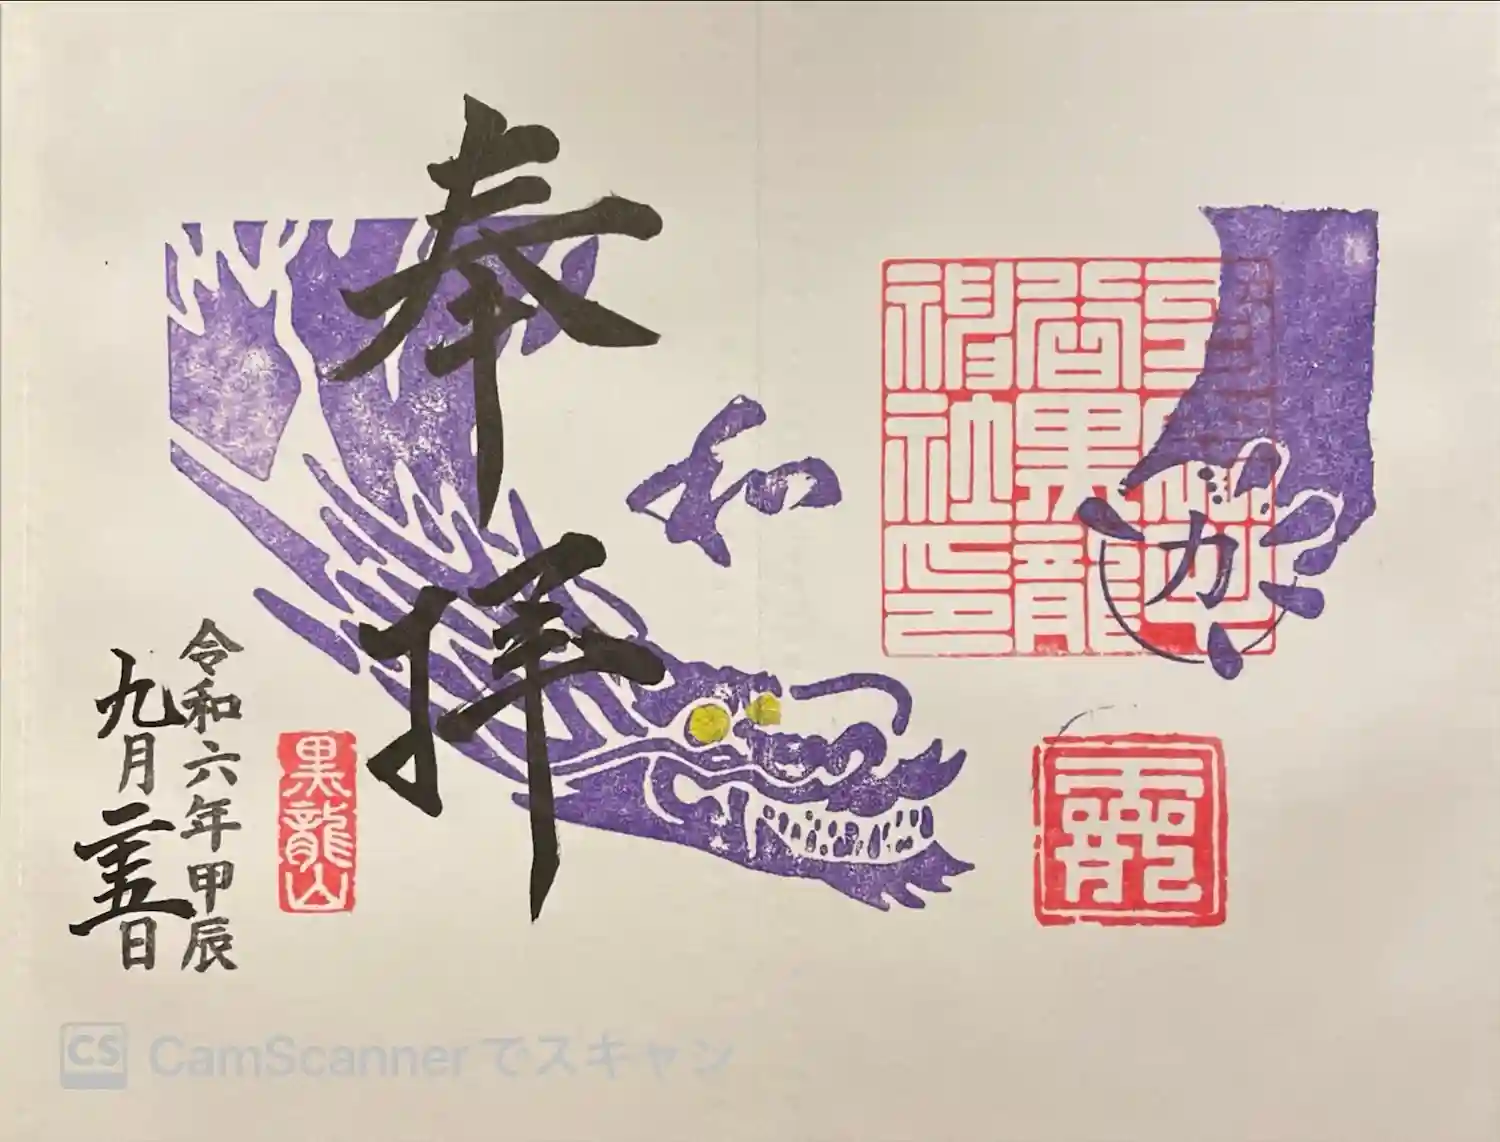 奉拝
和
カ
龗
令和六年甲辰
九月二十五日
黒龍山
CS CamScannerでスキャン